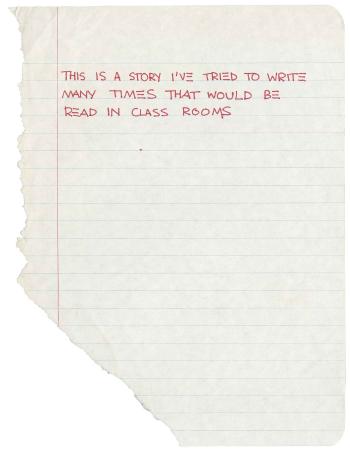 THIS IS A STORY I'VE TRIED TO WRITE
MANY TIMES THAT WOULD BE
READ IN CLASS ROOMS